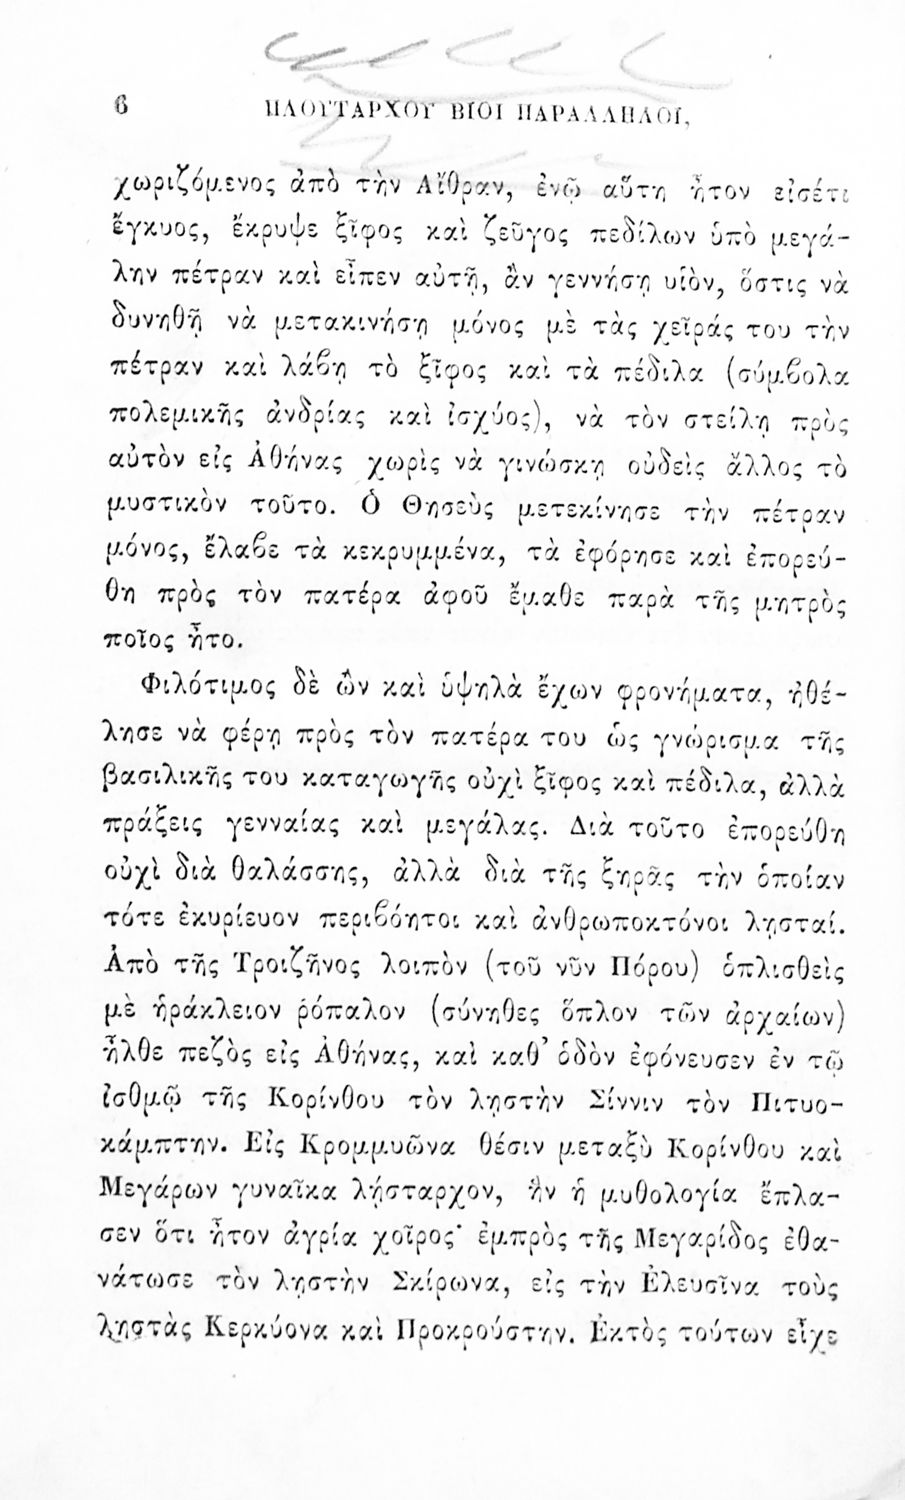 6 ΠΛΟΥΤΑΡΧΟΥ ΒΙΟΙ ΠΑΡΑΛΛΗΛΟΙ,
χωριζόμενος ἀπὸ τὴν Αἴθραν, ἐνῷ αὕτη ἦτον εἰσέτι
ἔγκυος, ἔκρυψε ξῖφος καὶ ζεῦγος πεδίλων ὑπὸ μεγά-
λην πέτραν καὶ εἶπεν αὐτῇ, ἂν γεννήσῃ υἱὸν, ὅστις νὰ
δυνηθῇ νὰ μετακινήσῃ μόνος μὲ τὰς χεῖράς του τὴν
πέτραν καὶ λάβῃ τὸ ξῖφος καὶ τὰ πέδιλα (σύμβολα
πολεμικῆς ἀνδρίας καὶ ἰσχύος), νὰ τὸν στείλῃ πρὸς
αὐτὸν εἰς Ἀθήνας χωρὶς νὰ γινώσκῃ οὐδεὶς ἄλλος τὸ
μυστικὸν τοῦτο. Ὁ Θησεὺς μετεκίνησε τὴν πέτραν
μόνος, ἔλαβε τὰ κεκρυμμένα, τὰ ἐφόρησε καὶ ἐπορεύ-
θη πρὸς τὸν πατέρα ἀφοῦ ἔμαθε παρὰ τῆς μητρὸς
ποῖος ἦτο.
Φιλότιμος δὲ ὢν καὶ ὑψηλὰ ἔχων φρονήματα, ἠθέ-
λησε νὰ φέρῃ πρὸς τὸν πατέρα του ὡς γνώρισμα τῆς
βασιλικῆς του καταγωγῆς οὐχὶ ξῖφος καὶ πέδιλα, ἀλλὰ
πράξεις γενναίας καὶ μεγάλας. Διὰ τοῦτο ἐπορεύθη
οὐχὶ διὰ θαλάσσης, ἀλλὰ διὰ τῆς ξηρᾶς τὴν ὁποίαν
τότε ἐκυρίευον περιβόητοι καὶ ἀνθρωποκτόνοι λῃσταί.
Ἀπὸ τῆς Τροιζῆνος λοιπὸν (τοῦ νῦν Πόρου) ὁπλισθεὶς
μὲ ἡράκλειον ῥόπαλον (σύνηθες ὅπλον τῶν ἀρχαίων)
ἦλθε πεζὸς εἰς Ἀθήνας, καὶ καθ' ὁδὸν ἐφόνευσεν ἐν τῷ
ἰσθμῷ τῆς Κορίνθου τὸν λῃστὴν Σίννιν τὸν Πιτυο-
κάμπτην. Εἰς Κρομμυῶνα θέσιν μεταξὺ Κορίνθου καὶ
Μεγάρων γυναῖκα λῄσταρχον, ἣν ἡ μυθολογία ἔπλα-
σεν ὅτι ἦτον ἀγρία χοῖρος· ἐμπρὸς τῆς Μεγαρίδος ἐθα-
νάτωσε τὸν λῃστὴν Σκίρωνα, εἰς τὴν Ἐλευσῖνα τοὺς
λῃστὰς Κερκύονα καὶ Προκρούστην. Ἐκτὸς τούτων εἶχε